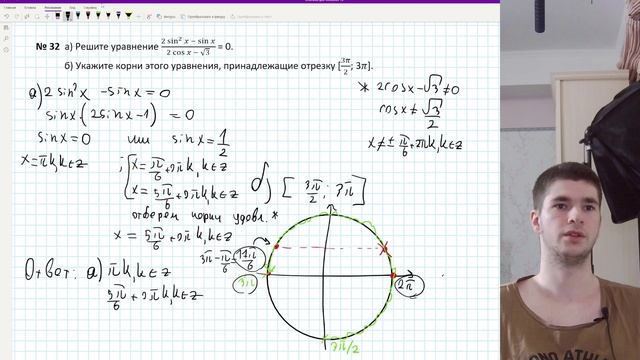 № 32 а) Решите уравнение (2 sin² x − sin x)/(2 cos x − √3) = 0.
б) Укажите корни этого уравнения, принадлежащие отрезку [3π/2; 3π].
а) 2 sin²x − sinx = 0
sinx·(2sinx−1) = 0
sinx = 0 или sinx = 1/2
x = πk, k∈z ; [x = π/6 + 2πk, k∈z
x = 5π/6 + 2πk, k∈z
отберем корни удовл. *
x = 5π/6 + 2πk, k∈z
Ответ: а) πk, k∈z
5π/6 + 2πk, k∈z
* 2cosx − √3 ≠ 0
cosx ≠ √3/2
x ≠ ± π/6 + 2πk, k∈z
б) [3π/2 ; 3π]
3π − π/6 = 17π/6
3π
2π
3π/2